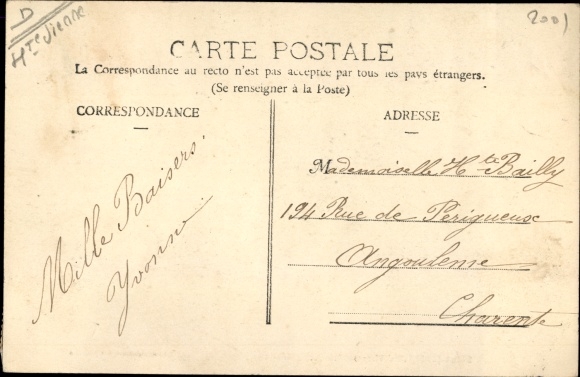 D
Hte Vienne
2001
CARTE POSTALE
La Correspondance au recto n'est pas acceptée par tous les pays étrangers.
(Se renseigner à la Poste)
CORRESPONDANCE
Mille Baisers.
Yvonne
ADRESSE
Mademoiselle Hte Bailly
194 Rue de Perigueux
Angouleme
Charente